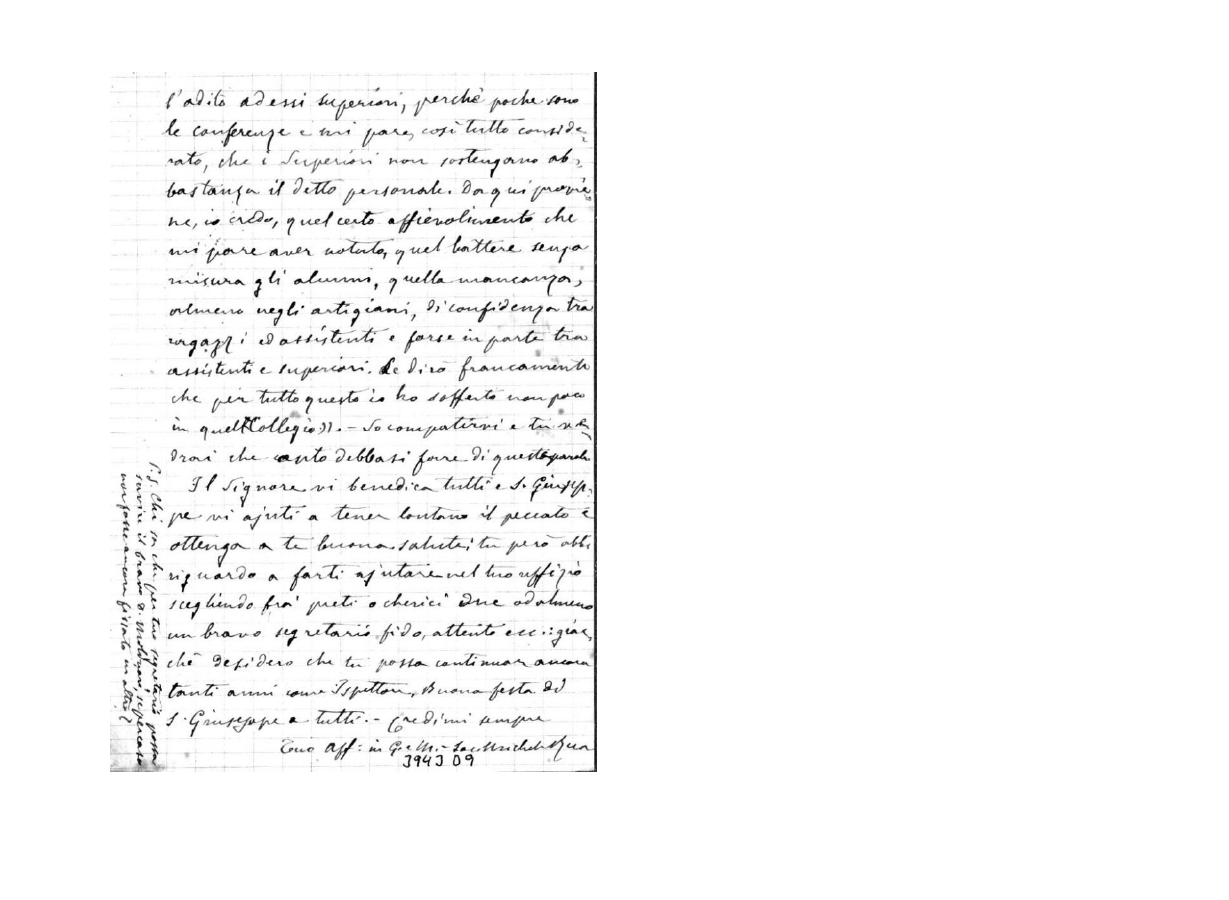 l'adito ad essi superiori, perchè poche sono
le conferenze e mi pare, così tutto conside-
rato, che i Superiori non sostengano ab-
bastanza il detto personale. Da qui provie-
ne, io credo, quel certo affievolimento che
mi pare aver notato, quel battere senza
misura gli alunni, quella mancanza,
almeno negli artigiani, di confidenza tra
ragazzi ed assistenti e forse in parte tra
assistenti e superiori. Le dirò francamente
che per tutto questo io ho sofferto non poco
in quel Collegio)). - So compatirvi e tu ve-
drai che conto debbasi fare di queste parole
Il Signore vi benedica tutti e S. Giusep-
pe vi ajuti a tener lontano il peccato e
ottenga a te buona salute; tu però abbi
riguardo a farti ajutare nel tuo uffizio
scegliendo fra' preti o cherici due od almeno
un bravo segretario fido, attento ecc.: giac-
chè desidero che tu possa continuar ancora
tanti anni come Ispettore, Buona festa di
S. Giuseppe a tutti. - Credimi sempre
Tuo Aff: in G. e M. - Sac. Michele Rua
3943 09
P.S. Chi sa che per tuo segretario possa
servire il bravo D. se per caso
non fosse ancora fissato in altro?